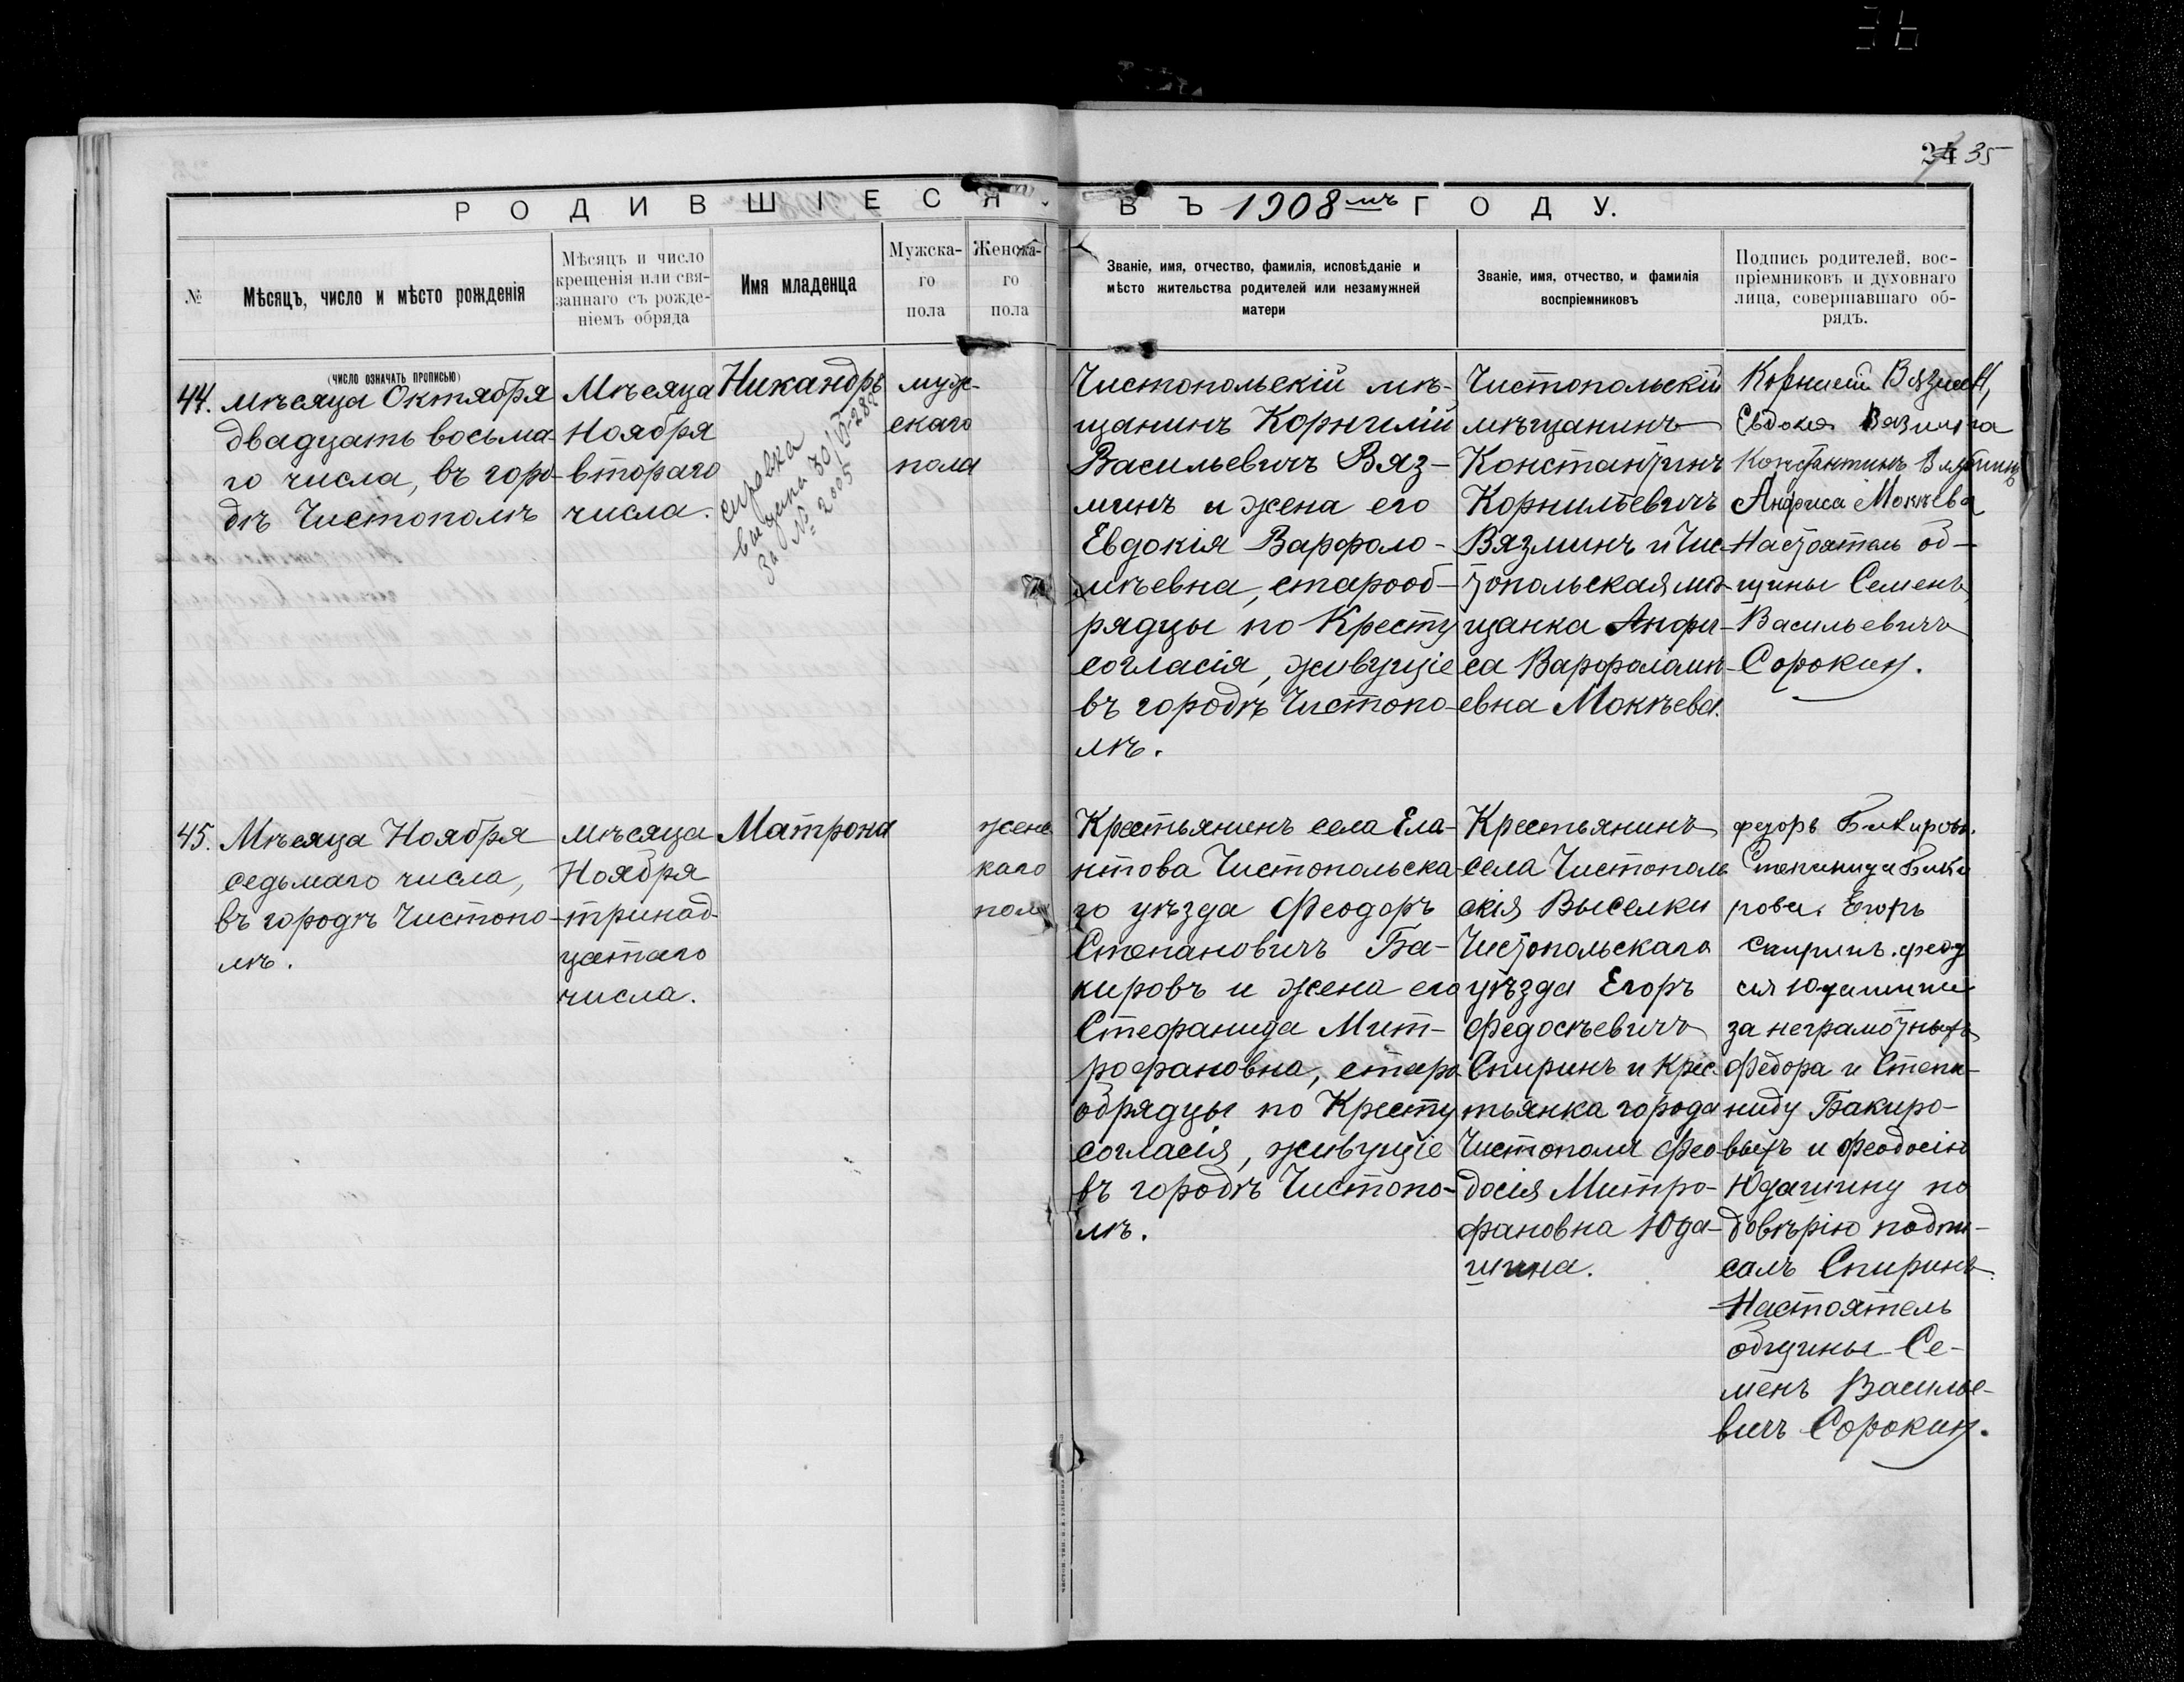 35
РОДИВШІЕСЯ ВЪ 1908 мъ ГОДУ.
№
Мѣсяцъ, число и мѣсто рожденія
Мѣсяцъ и число
крещенія или свя-
заннаго съ рожде-
ніемъ обряда
Имя младенца
Мужска-
го
пола
Женска-
го
пола
Званіе, имя, отчество, фамилія, исповѣданіе и
мѣсто жительства родителей или незамужней
матери
Званіе, имя, отчество, и фамилія
воспріемниковъ
Подпись родителей, вос-
пріемниковъ и духовнаго
лица, совершавшаго об-
рядъ.
(число означать прописью)
44.
мѣсяца Октября
двадцать восьма-
го числа, въ горо-
дѣ Чистополѣ
Мѣсяца
Ноября
втораго
числа.
Никандръ
справка
выдана 30/
за № 2005
муж-
скаго
пола
Чистопольскій мѣ-
щанинъ Корнилій
Васильевичъ Вяз-
минъ и жена его
Евдокія Варфоло-
мѣевна, старооб-
рядцы по Кресту
согласія, живущіе
въ городѣ Чистопо-
лѣ.
Чистопольскій
мѣщанинъ
Константинъ
Корнильевичъ
Вязминъ и Чис-
топольская мѣ-
щанка Анфи-
са Варфоламѣ-
евна Мокѣева.
Корнилій
Евдокея Вязмина
Константинъ
Анфиса Мокѣева
Настоятель об-
щины Семенъ
Васильевичъ
Сорокин.
45.
Мѣсяца Ноября
седьмаго числа,
въ городѣ Чистопо-
лѣ.
мѣсяца
Ноября
тринад-
цатаго
числа.
Матрона
женс
каго
пола
Крестьянинъ села Ела-
нтова Чистопольска-
го уѣзда Феодоръ
Степановичъ Ба-
кировъ и жена его
Стефанида Мит-
рофановна, старо
обрядцы по Кресту
согласія, живущіе
въ городѣ Чистопо-
лѣ.
Крестьянинъ
села Чистополь
скія Выселки
Чистопольскаго
уѣзда Егоръ
Федосѣевичъ
Спиринъ и Крес-
тьянка города
Чистополя Фео
досия Митро-
фановна Юда-
шина.
Егоръ
за неграмотныхъ
Федора и Степа-
ниду Бакиро-
выхъ и Феодосію
Юдашину по
довѣрію подпи-
салъ Спиринъ.
Настоятель
общины Се-
менъ Василье-
вичъ Сорокин.